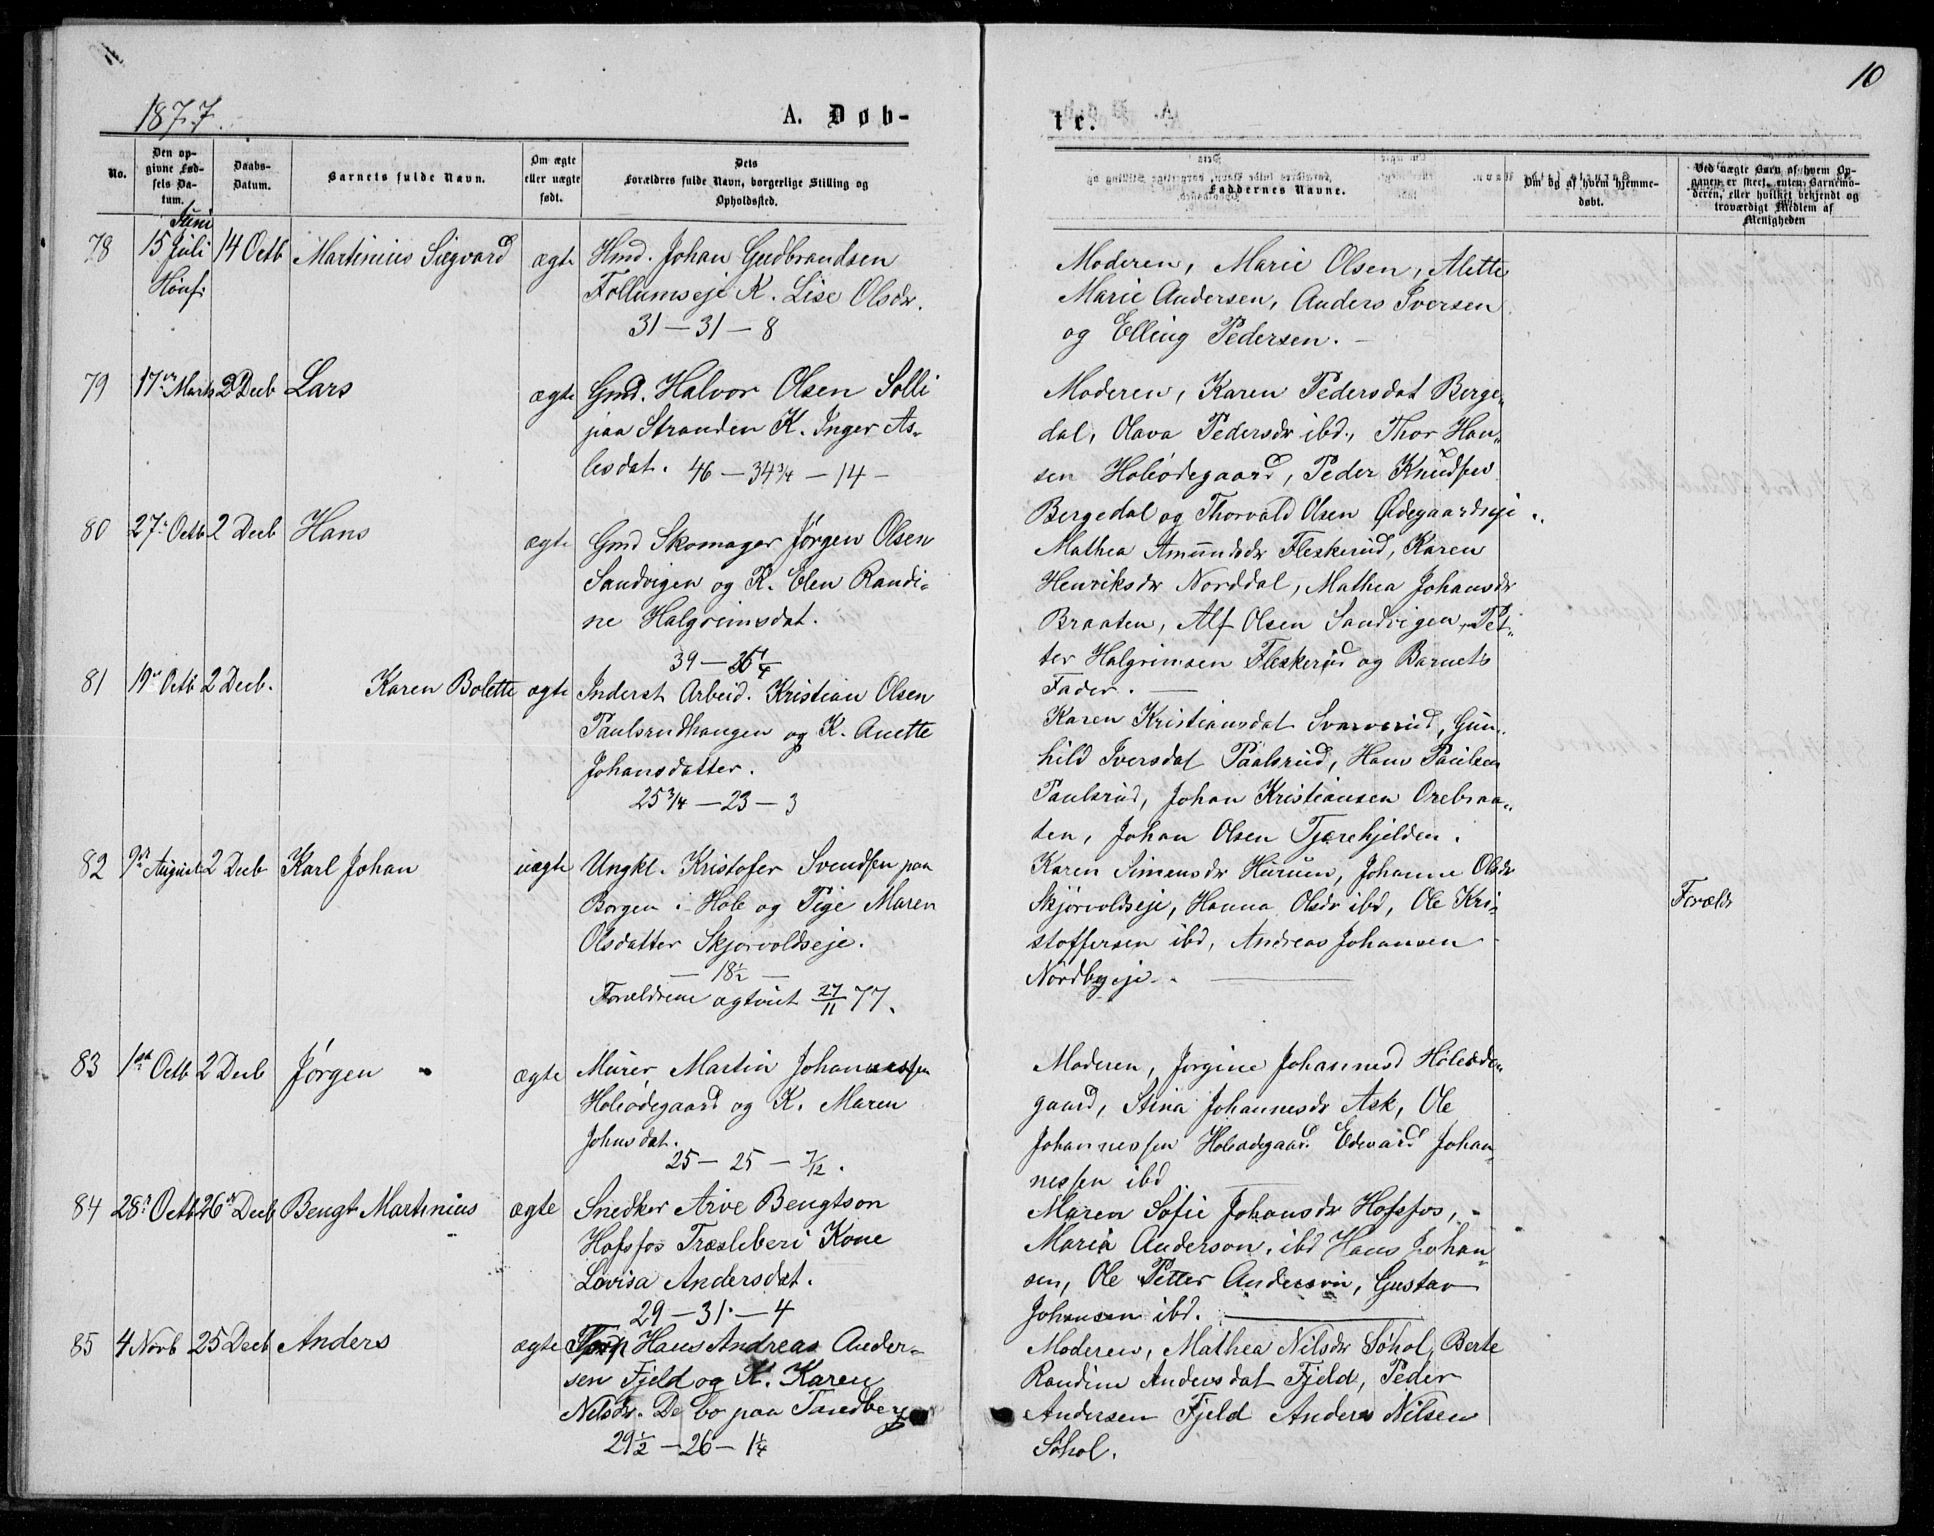 10
1877.
A. Døb-
te.
No.
Den op-
givne Fød-
sels Da-
tum.
Daabs-
Datum.
Barnets fulde Navn.
Om ægte
eller uægte
født.
Dets
Forældres fulde Navn, borgerlige Stilling og
Opholdssted.
Faddernes Navne.
Om og af hvem hjemme-
døbt.
Ved uægte Barn af hvem Op-
gaven er skeet, enten Barnemo-
deren, eller hvilket bekjendt og
troværdigt Medlem af
Menigheden
Juni
78 15 Juli 14 Octb Martinius Sigvard ægte Hmd. Johan Gudbrandsen
Hønf.
Follumseje K. Lise Olsdr.
31 - 31 - 8
Moderen, Marie Olsen, Alette
Marie Andersen, Anders Iversen
og Elling Pedersen. -
79 17 Marts 2 Decb Lars ægte Gmd. Halvor Olsen Solli
paa Stranden K. Inger As-
lesdat. 46 - 34 3/4 - 14 -
Moderen, Karen Pedersdat Berge-
dal, Olava Pedersdr ibd., Thor Han-
sen Holeødegaard, Peder Knudsen
Bergedal og Thorvald Olsen Ødegaardseje
80 27 Octb 2 Decb Hans ægte Gmd Skomager Jørgen Olsen
Sandvigen og K. Elen Randi-
ne Halgrimsdat.
39 - 36 1/4
Mathea Amundsdr Fleskerud, Karen
Henriksdr Norddal, Mathea Johansdr
Braaten, Alf Olsen Sandvigen, Pet-
ter Halgrimsen Fleskerud og Barnets
Fader. -
81 19 Octb 2 Decb. Karen Bolette ægte Inderst Arbeid. Kristian Olsen
Paulsrudhaugen og K. Anette
Johansdatter.
25 3/4 - 23 - 3
Karen Kristiansdat Svarverud, Gun-
hild Iversdat Paalsrud, Hans Paulsen
Paulsrud, Johan Kristiansen Orebraa-
ten, Johan Olsen Tjærehjelden.
82 9 August 2 Decb Karl Johan uægte Ungkl. Kristofer Svendsen paa
Borgen i Hole og Pige Maren
Olsdatter Skjørvoldseje.
- 18 1/2 -
Forældrene ægtviet 27/11 77.
Karen Simensdr Hurum, Johanne Olsdr
Skjørvoldseje, Hanna Olsdr ibd, Ole Kri-
stoffersen ibd, Andreas Johansen
Nordbyeje. -
Foreldr
83 1ste Octb 2 Decb Jørgen ægte Murer Martin Johannessen
Holeødegaard og K. Maren
Johnsdat.
25 - 25 - 7/12.
Moderen, Jørgine Johannesd Holeøde
gaard, Stina Johannesdr Ask, Ole
Johannessen Holeødegaard Edvard Johan-
nessen ibd
84 28 Octb 26 Decb Bengt Martinius ægte Snedker Arve Bengtson
Hofsfos Træsleberi Kone
Lovisa Andersdat.
29 - 31 - 4
Maren Sofie Johansdr Hofsfos, -
Maria Anderson, ibd Hans Johan-
sen, Ole Petter Anderson, Gustav
Johansen ibd.
85 4 Novb 25 Decb Anders ægte Hans Andreas Ander-
sen Fjeld og K. Karen
Nilsdr. De bo paa Tandberg
29 1/2 - 26 - 1 1/4
Moderen, Mathea Nilsdr Søhol, Berte
Randine Andersdat Fjeld, Peder
Andersen Fjeld Anders Nilsen
Søhol.